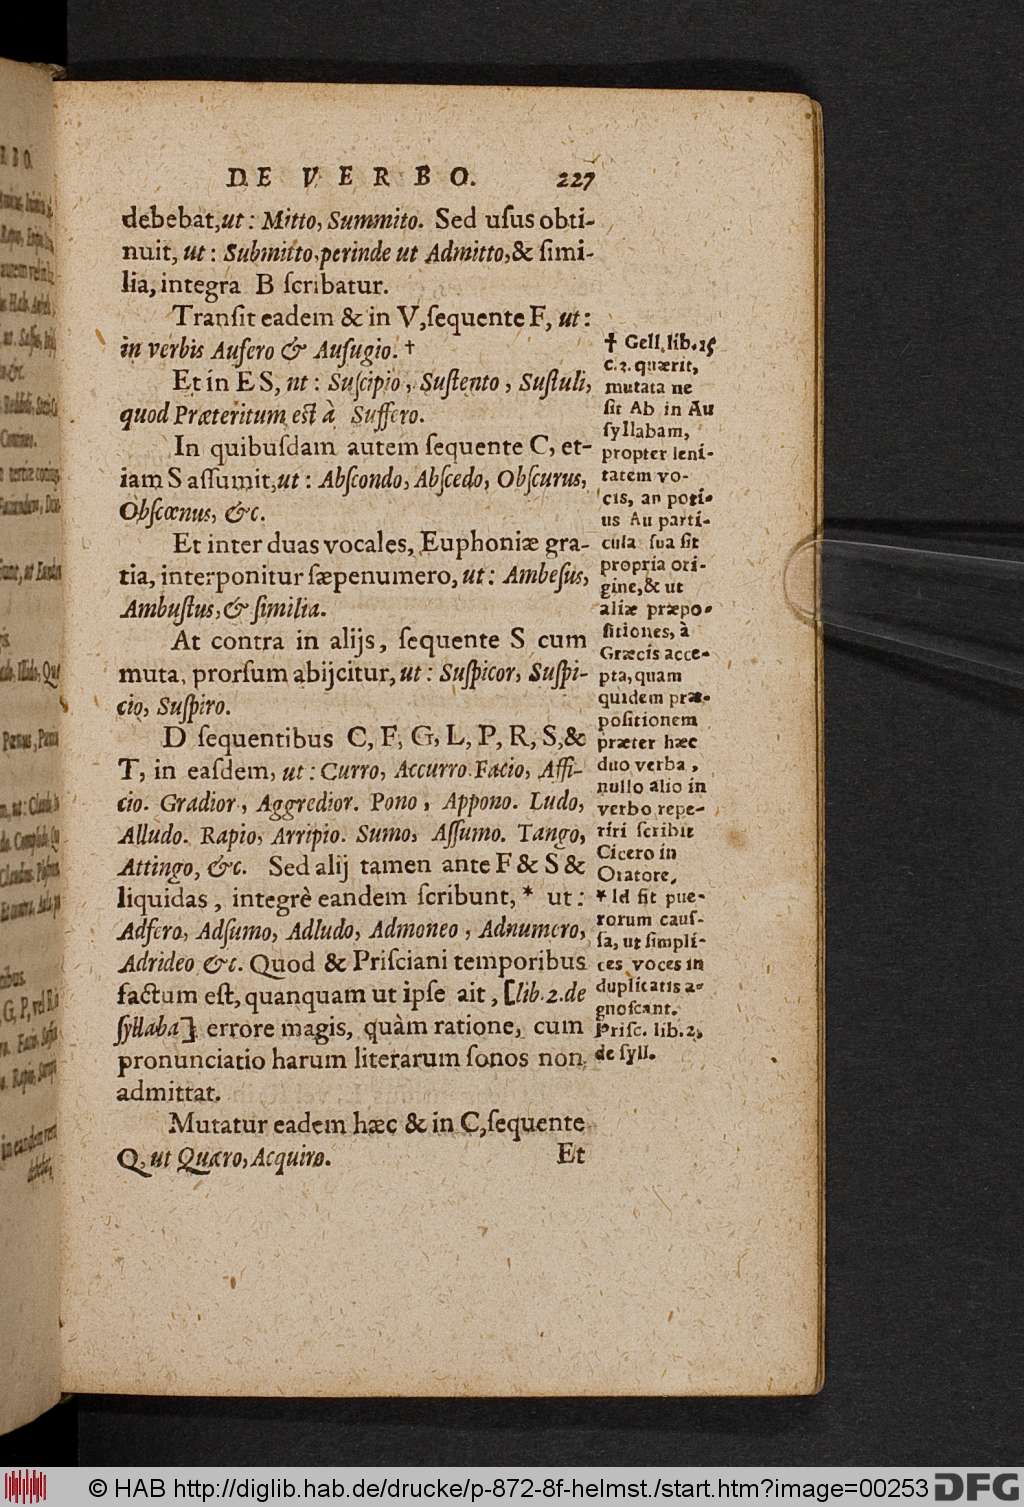 DE VERBO. 227
debebat,ut: Mitto, Summito. Sed uſus obti-
nuit, ut: Submitto, perinde ut Admitto,& ſimi-
lia, integra B ſcribatur.
Tranſit eadem & in V,ſequente F, ut:
in verbis Aufero & Aufugio. †
Et in ES, nt: Suſcipio, Suſtento, Suſtuli,
quod Præteritum eſt à Suffero.
In quibuſdam autem ſequente C, et-
iam S aſſumit,ut: Abſcondo, Abſcedo, Obſcurus,
Obſcœnus, &c.
Et inter duas vocales, Euphoniæ gra-
tia, interponitur ſæpenumero, ut: Ambeſus,
Ambuſtus, & ſimilia.
At contra in alijs, ſequente S cum
muta, prorſum abijcitur, ut: Suſpicor, Suſpi-
cio, Suſpiro.
D ſequentibus C, F, G, L, P, R, S,&
T, in eaſdem, ut: Curro, Accurro. Facio, Affi-
cio. Gradior, Aggredior. Pono, Appono. Ludo,
Alludo. Rapio, Arripio. Sumo, Aſſumo. Tango,
Attingo, &c. Sed alij tamen ante F & S &
liquidas, integrè eandem ſcribunt, * ut:
Adfero, Adſumo, Adludo, Admoneo, Adnumero,
Adrideo &c. Quod & Priſciani temporibus
factum eſt, quanquam ut ipſe ait, [lib. 2. de
ſyllaba] errore magis, quàm ratione, cum
pronunciatio harum literarum ſonos non
admittat.
Mutatur eadem hæc & in C,ſequente
Q, ut Quæro, Acquiro.
Et
† Gell. lib. 15
c. 2. quærit,
mutata ne
ſit Ab in Au
ſyllabam,
propter leni-
tatem vo-
cis, an poti-
us Au parti-
cula ſua ſit
propria ori-
gine,& ut
aliæ præpo-
ſitiones, à
Græcis acce-
pta, quam
quidem præ-
poſitionem
præter hæc
duo verba,
nullo alio in
verbo repe-
riri ſcribit
Cicero in
Oratore.
* Id fit pue-
rorum cauſ-
ſa, ut ſimpli-
ces voces in
duplicatis a-
gnoſcant.
Priſc. lib. 2.
de ſyll.
© HAB http://diglib.hab.de/drucke/p-872-8f-helmst./start.htm?image=00253
DFG